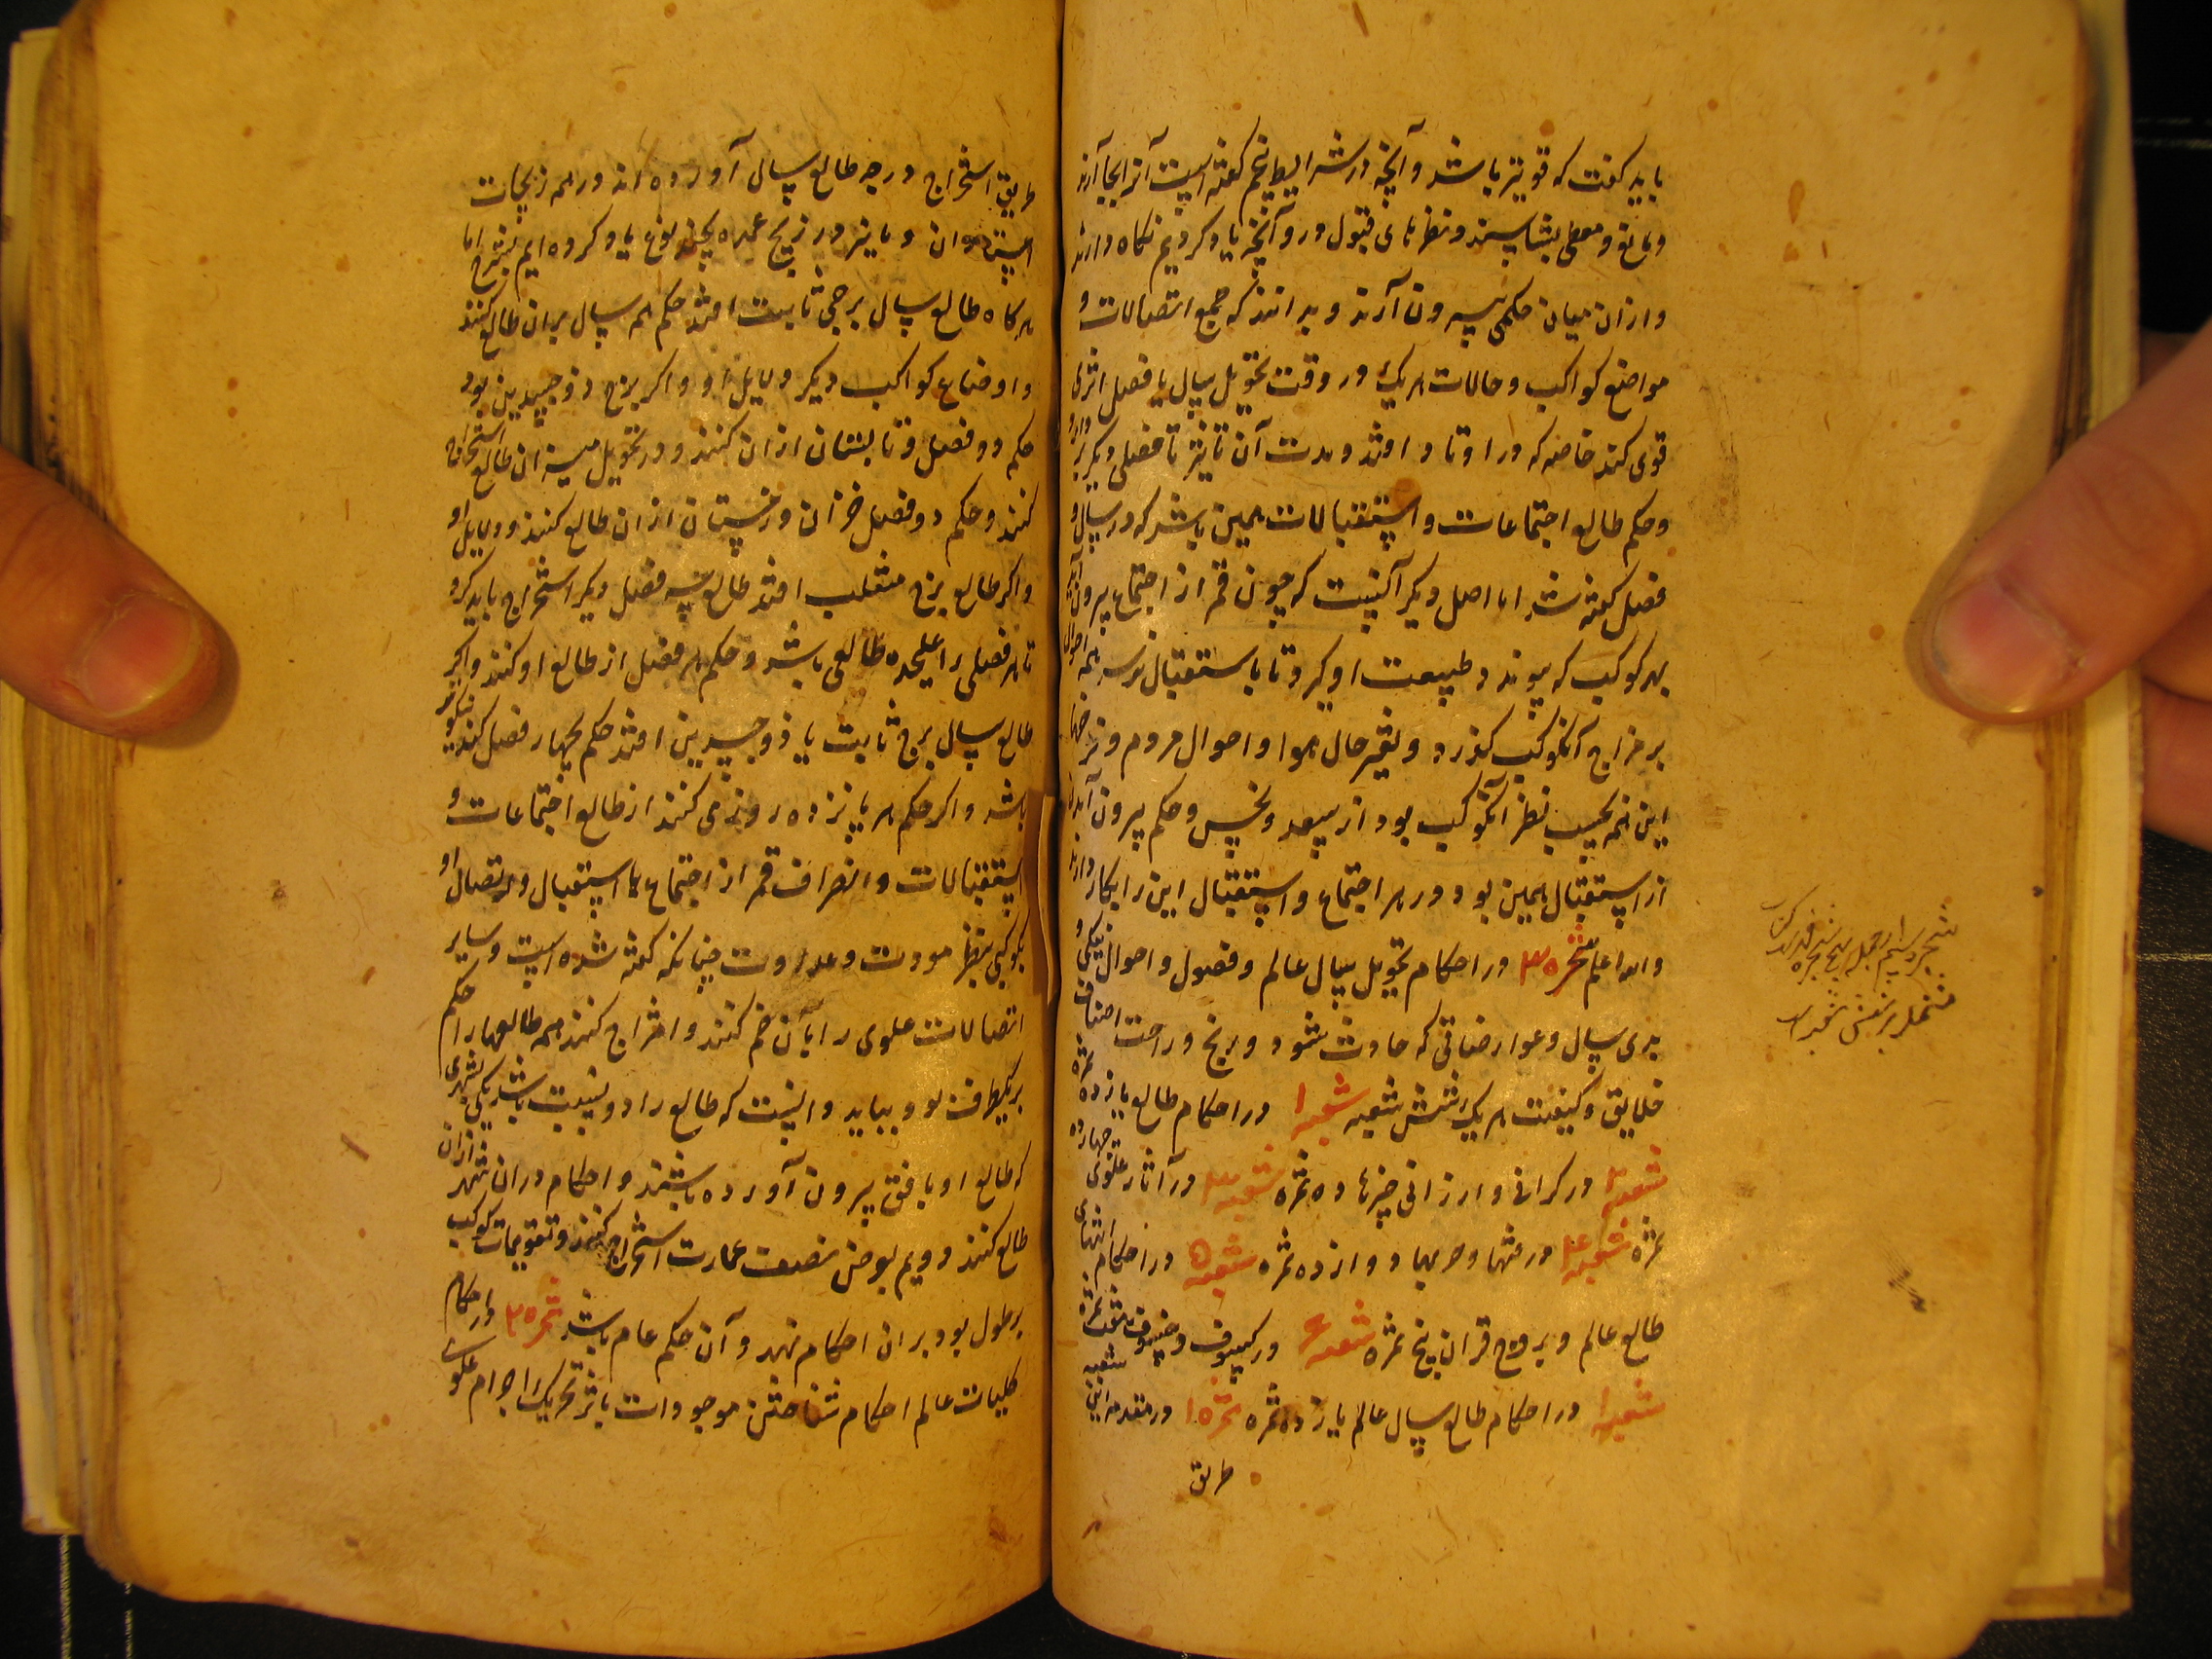 باید گفت که قویتر باشد و آنچه در شرایط نجم گفته است آنرا بجا آرند
و مانع و معطی بشناسند و نظرهای قبول و رد و آنچه یاد کردیم نگاه دارند
و از ان میان حکمی بیرون آرند و بدانند که جمیع اتصالات و
مواضع کواکب و حالات هر یک در وقت تحویل سال یا فصل اثری
قوی کند خاصه که در اوتاد افتد و مدت آن تاثیر تا فصلی دیگر بر دارد
و حکم طالع اجتماعات و استقبالات همین باشد که در سال و
فصل گفته شد اما اصل دیگر آنست که چون قمر از اجتماع بیرون آید
بهر کوکب که پیوندد طبیعت او گیرد تا باستقبال رسد همه احوال
بر مزاج آنکوکب گذرد و تغیر حال هوا و احوال مردم و نرخها
این همه بحسب نظر آنکوکب بود از سعد و نحس و حکم بیرون آمدن
از استقبال همین بود در هر اجتماع و استقبال این را بکار دارند
والله اعلم شجره ۳ در احکام تحویل سال عالم و فصول و احوال نیکی و
بدی سال و عوارضاتی که حادث شود و رنج و راحت اصناف
خلایق و کیفیت هر یک شش شعبه شعبه ۱ در احکام طالع یازده ثمره
شعبه ۲ در گرانی و ارزانی چیزها ده ثمره شعبه ۳ در آثار علوی چهارده
ثمره شعبه ۴ در فتنها و حربها دوازده ثمره شعبه ۵ در احکام انتهای
طالع عالم و بروج قران پنج ثمره شعبه ۶ در کسوف و خسوف هشت ثمره
شعبه ۱ در احکام طالع سال عالم یازده ثمره ثمره ۱ در مقدمه این شعبه
طریق
طریق استخراج درجه طالع سال آورده اند در همه زیجات
استادان و ما نیز در زیج عمده بچند نوع یاد کرده ایم بشرح اما
هر گاه طالع سال برجی ثابت افتد حکم همه سال بران طالع کنند
و اوضاع کواکب دیگر و دلایل او و اگر برج ذو جسدین بود
حکم دو فصل و تابستان از ان کنند و در تحویل میزان طالع استخراج
کنند و حکم دو فصل خزان و زمستان از ان طالع کنند و دلایل او
و اگر طالع برج منقلب افتد طالع سه فصل دیگر استخراج باید کرد
تا هر فصلی را علیحده طالعی باشد و حکم هر فصل از طالع او کنند و اگر
طالع سال برج ثابت یا ذو جسدین افتد حکم بچهار فصل کنند نیکوتر
باشد و اگر حکم هر پانزده روز می کنند از طالع اجتماعات و
استقبالات و انصراف قمر از اجتماع یا استقبال و اتصال او
بکوکبی بنظر مودت و عداوت چنانکه گفته شده است و سایر
اتصالات علوی را بآن ضم کنند و امتزاج کنند همه طالعها را حکم
بریکطرف بود بباید دانست که طالع را دو نسبت باشد یکی شهری
که طالع او بافق بیرون آورده باشند و احکام در ان شهر از ان
طالع کنند دویم بعرض نصف عمارت استخراج کنند و تقویمات کوکب
بر طول بود بر ان احکام نهند و آن حکم عام باشد ثمره ۲ در احکام
کلیات عالم احکام شناختن موجودات باثر تحریک اجرام علوی